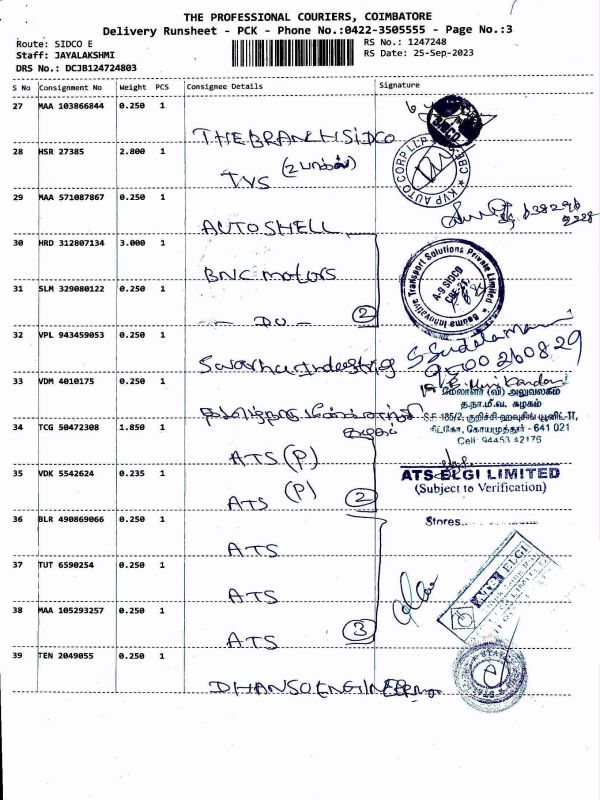 THE PROFESSIONAL COURIERS, COIMBATORE
Delivery Runsheet - PCK - Phone No.:0422-3505555 - Page No.:3
Route: SIDCO E
RS No.: 1247248
Staff: JAYALAKSHMI
RS Date: 25-Sep-2023
DRS No.: DCJB124724803
S No Consignment No Weight PCS Consignee Details Signature
27 MAA 103866844 0.250 1
THE BRANCH SIDCO
28 HSR 27385 2.800 1
TVS
KVP AUTO CORP LLP CBE
29 MAA 571087867 0.250 1
AUTOSHELL
638296
2228
30 HRD 312807134 3.000 1
BNC motors
31 SLM 329080122 0.250 1
- DO - 2
Transport Solutions Private Limited
A-9 SIDCO
CBE-21
32 VPL 943459053 0.250 1
9500260829
33 VDM 4010175 0.250 1
மேலாளர் (வி) அலுவலகம்
த.நா.மீ.வ. கழகம்
S.F. 185/2, குறிச்சி ஹவுசிங் யூனிட்-II,
சிட்கோ, கோயமுத்தூர் - 641 021
Cell: 94453 42176
34 TCG 50472308 1.850 1
ATS (P)
35 VDK 5542624 0.235 1
ATS (P) 2
ATS ELGI LIMITED
(Subject to Verification)
Stores
36 BLR 490869066 0.250 1
ATS
37 TUT 6590254 0.250 1
ATS
ELGI
38 MAA 105293257 0.250 1
ATS 3
39 TEN 2049055 0.250 1